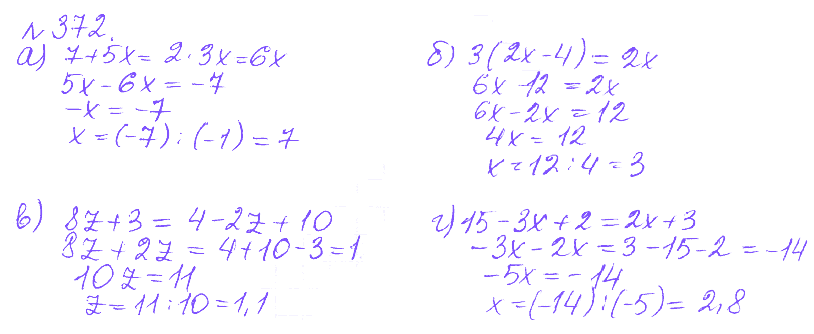 № 372.
а) 7+5x = 2·3x = 6x
5x - 6x = -7
-x = -7
x = (-7) : (-1) = 7
б) 3(2x-4) = 2x
6x 12 = 2x
6x - 2x = 12
4x = 12
x = 12 : 4 = 3
в) 8z + 3 = 4 - 2z + 10
8z + 2z = 4 + 10 - 3 = 1
10 z = 11
z = 11 : 10 = 1,1
г) 15 - 3x + 2 = 2x + 3
-3x - 2x = 3 - 15 - 2 = -14
-5x = -14
x = (-14) : (-5) = 2,8